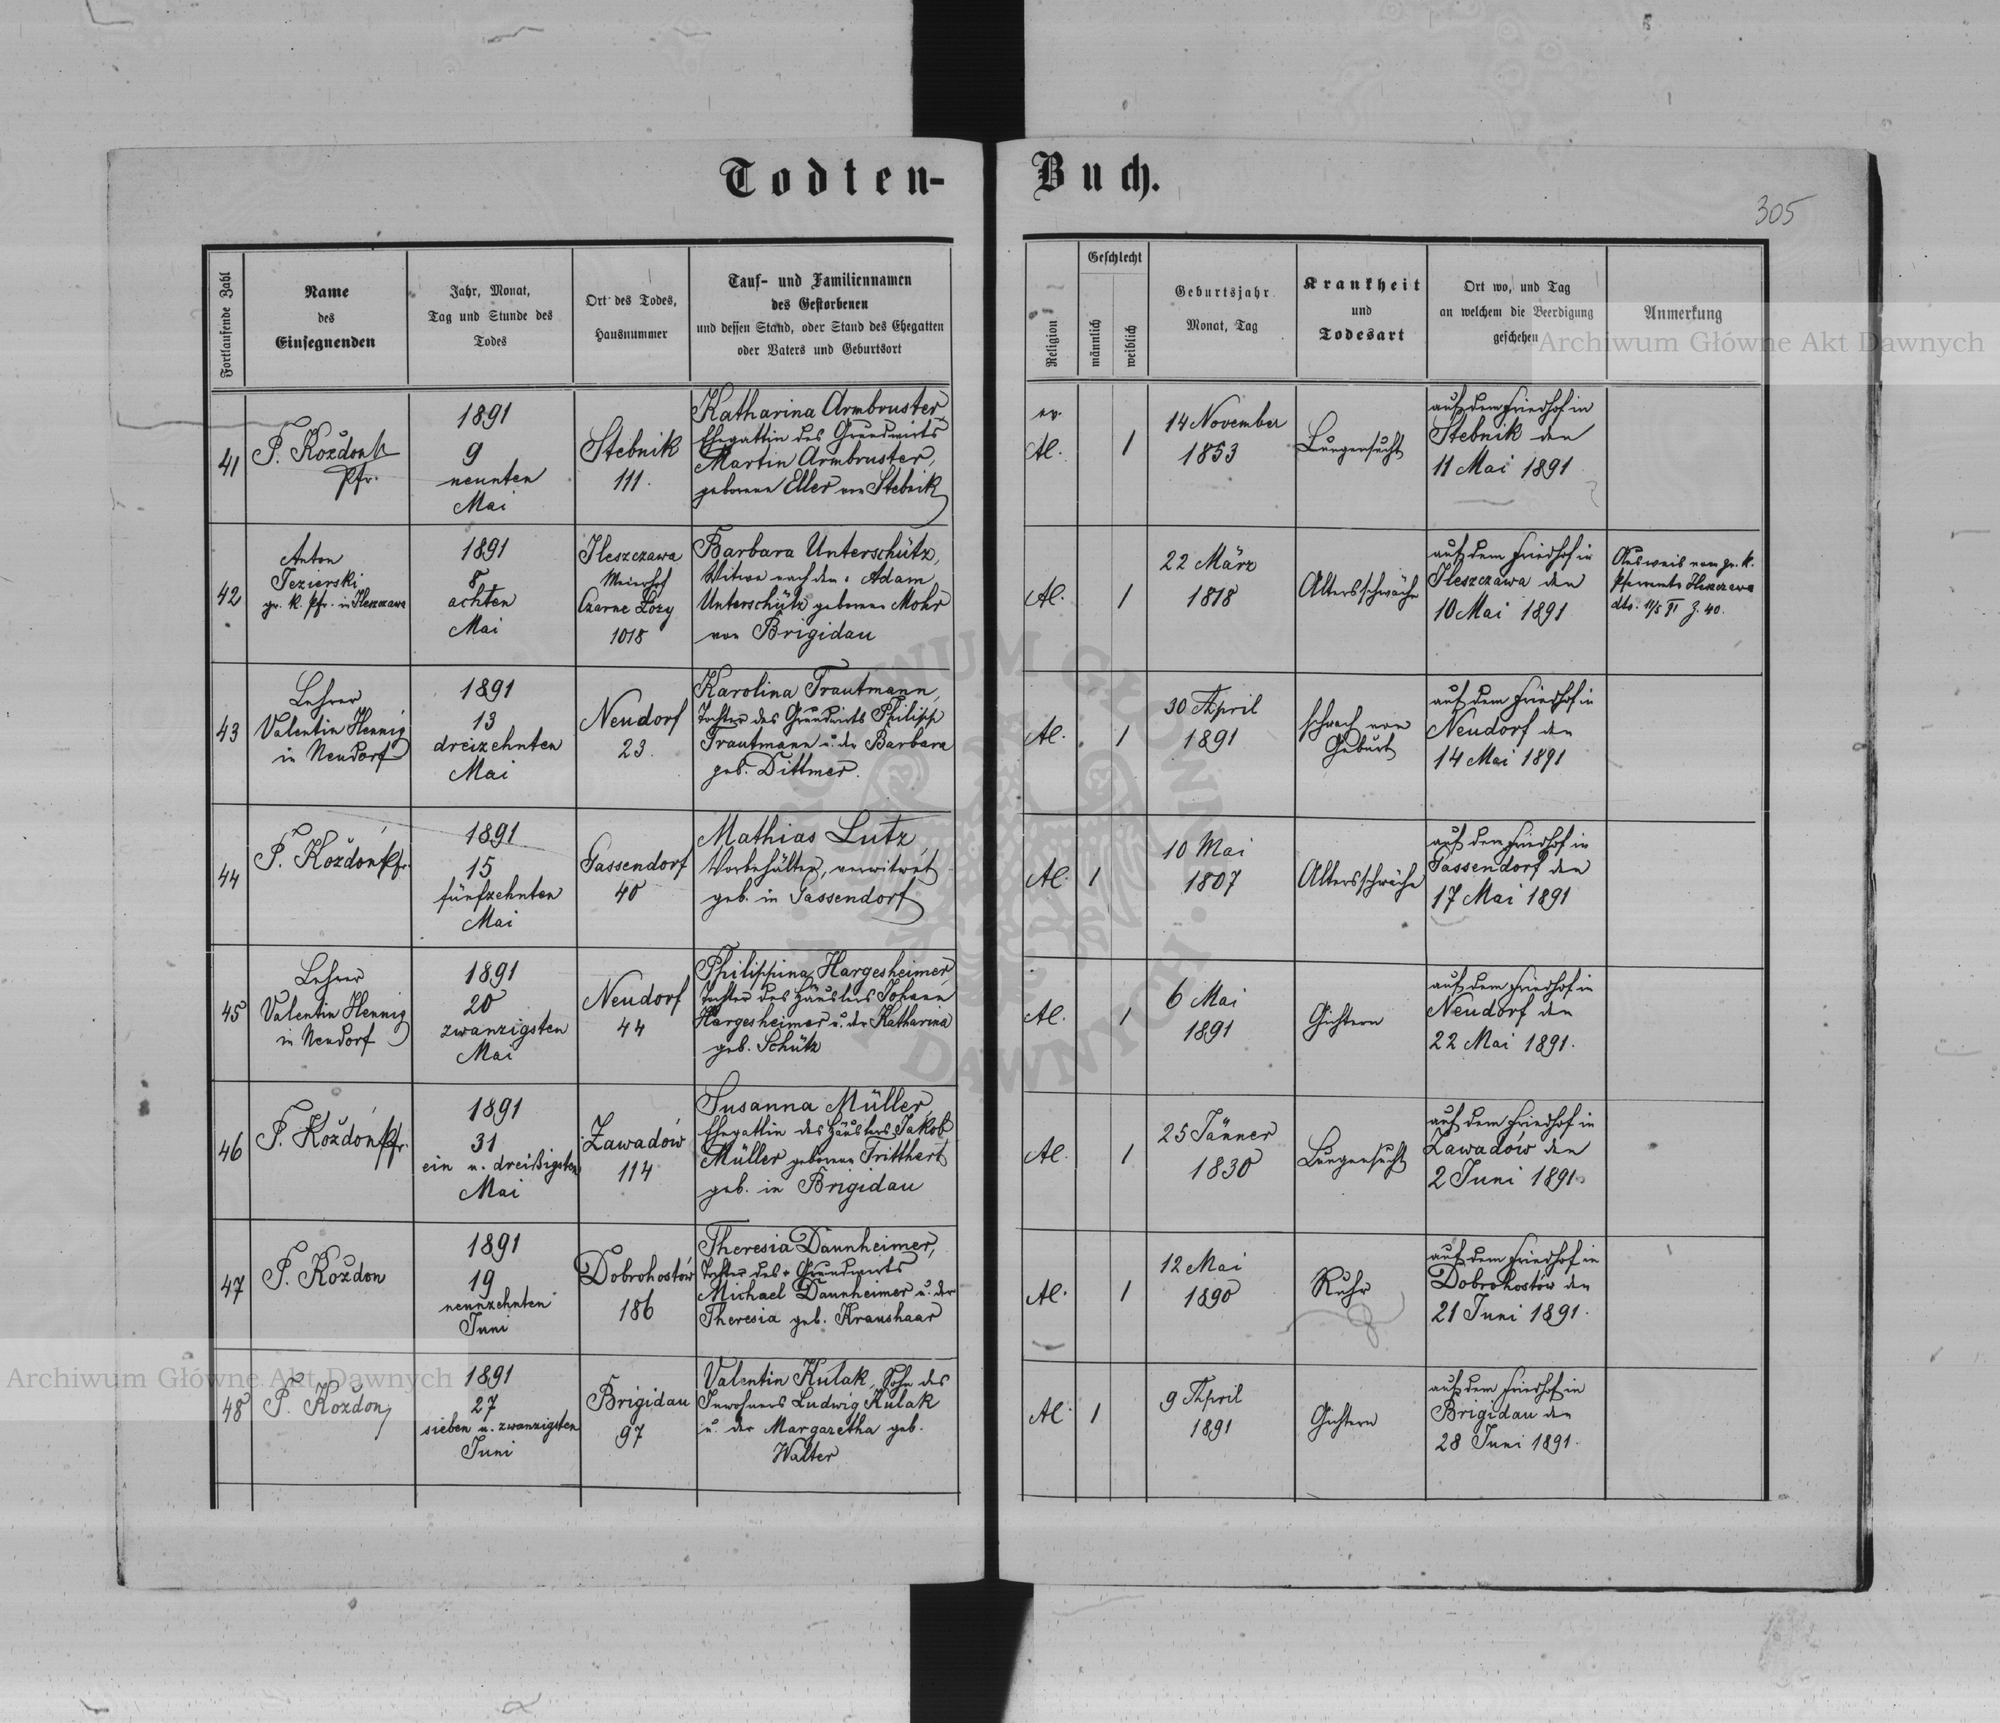 Todten-Buch.
305
Fortlaufende Zahl
Name
des
Einsegnenden
Jahr, Monat,
Tag und Stunde des
Todes
Ort des Todes,
Hausnummer
Tauf- und Familiennamen
des Gestorbenen
und dessen Stand, oder Stand des Ehegatten
oder Vaters und Geburtsort
Religion
Geschlecht
männlich
weiblich
Geburtsjahr
Monat, Tag
Krankheit
und
Todesart
Ort wo, und Tag
an welchem die Beerdigung
geschehen
Anmerkung
41
P. Koždon
Pfr.
1891
9
neunten
Mai
Stebnik
111.
Katharina Armbruster,
Ehegattin des Grundwirts
Martin Armbruster,
geborene Eller von Stebnik
ev.
AC.
1
14 November
1853
Lungensucht
auf dem Friedhof in
Stebnik den
11 Mai 1891
42
Anton
Jezierski
gr. k. Pfr. in Hleszczawa
1891
8
achten
Mai
Hleszczawa
Meierhof
Czarne Łozy
1018
Barbara Unterschütz,
Witwe nach dem Adam
Unterschütz geborene Mohr
von Brigidau
AC.
1
22 März
1818
Altersschwäche
auf dem Friedhof in
Hleszczawa den
10 Mai 1891
Ausweis vom gr. k.
Pfarramte Hleszczawa
dto. 11/5 91 Z. 40.
43
Lehrer
Valentin Hennig
in Neudorf
1891
13
dreizehnten
Mai
Neudorf
23.
Karolina Trautmann,
Tochter des Grundwirts Philipp
Trautmann u. der Barbara
geb. Dittmer.
AC.
1
30 April
1891
schwach von
Geburt
auf dem Friedhof in
Neudorf den
14 Mai 1891
44
P. Koždon Pfr.
1891
15
fünfzehnten
Mai
Gassendorf
40
Mathias Lutz,
Vorbehälter, verwitwet
geb. in Gassendorf
AC.
1
10 Mai
1807
Altersschwäche
auf dem Friedhof in
Gassendorf den
17 Mai 1891
45
Lehrer
Valentin Hennig
in Neudorf
1891
20
zwanzigsten
Mai
Neudorf
44
Philippina Hargesheimer,
Tochter des Häuslers Johann
Hargesheimer u. der Katharina
geb. Schütz
AC.
1
6 Mai
1891
Gichtern
auf dem Friedhof in
Neudorf den
22 Mai 1891.
46
P. Koždon Pfr.
1891
31
ein u. dreißigsten
Mai
Zawadów
114
Susanna Müller,
Ehegattin des Häuslers Jakob
Müller geborene Tritthert
geb. in Brigidau
AC.
1
25 Jänner
1830
Lungensucht
auf dem Friedhof in
Zawadów den
2 Juni 1891.
47
P. Koždon
1891
19
neunzehnten
Juni
Dobrohostów
186
Theresia Daunheimer,
Tochter des Grundwirts
Michael Daunheimer u. der
Theresia geb. Kraushaar
AC.
1
12 Mai
1890
Ruhr
auf dem Friedhof in
Dobrohostów den
21 Juni 1891.
48
P. Koždon
1891
27
sieben u. zwanzigsten
Juni
Brigidau
97
Valentin Kulak, Sohn des
Inwohners Ludwig Kulak
u. der Margaretha geb.
Walter
AC.
1
9 April
1891
Gichtern
auf dem Friedhof in
Brigidau den
28 Juni 1891.
Archiwum Główne Akt Dawnych
Archiwum Główne Akt Dawnych